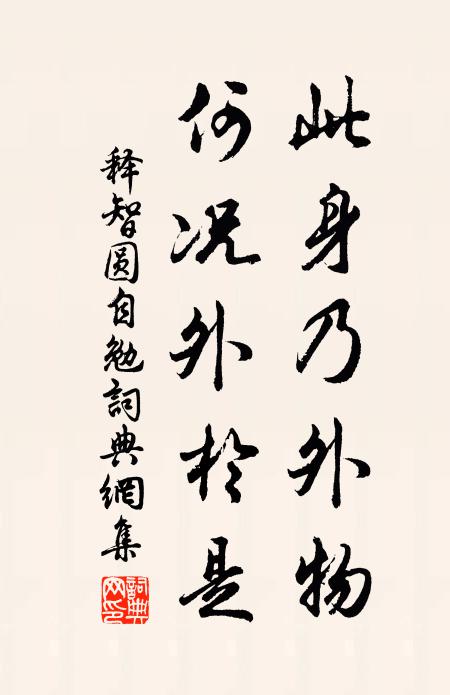 此身乃外物
何况外於是
释智圆自勉詞典網集
詞典网印